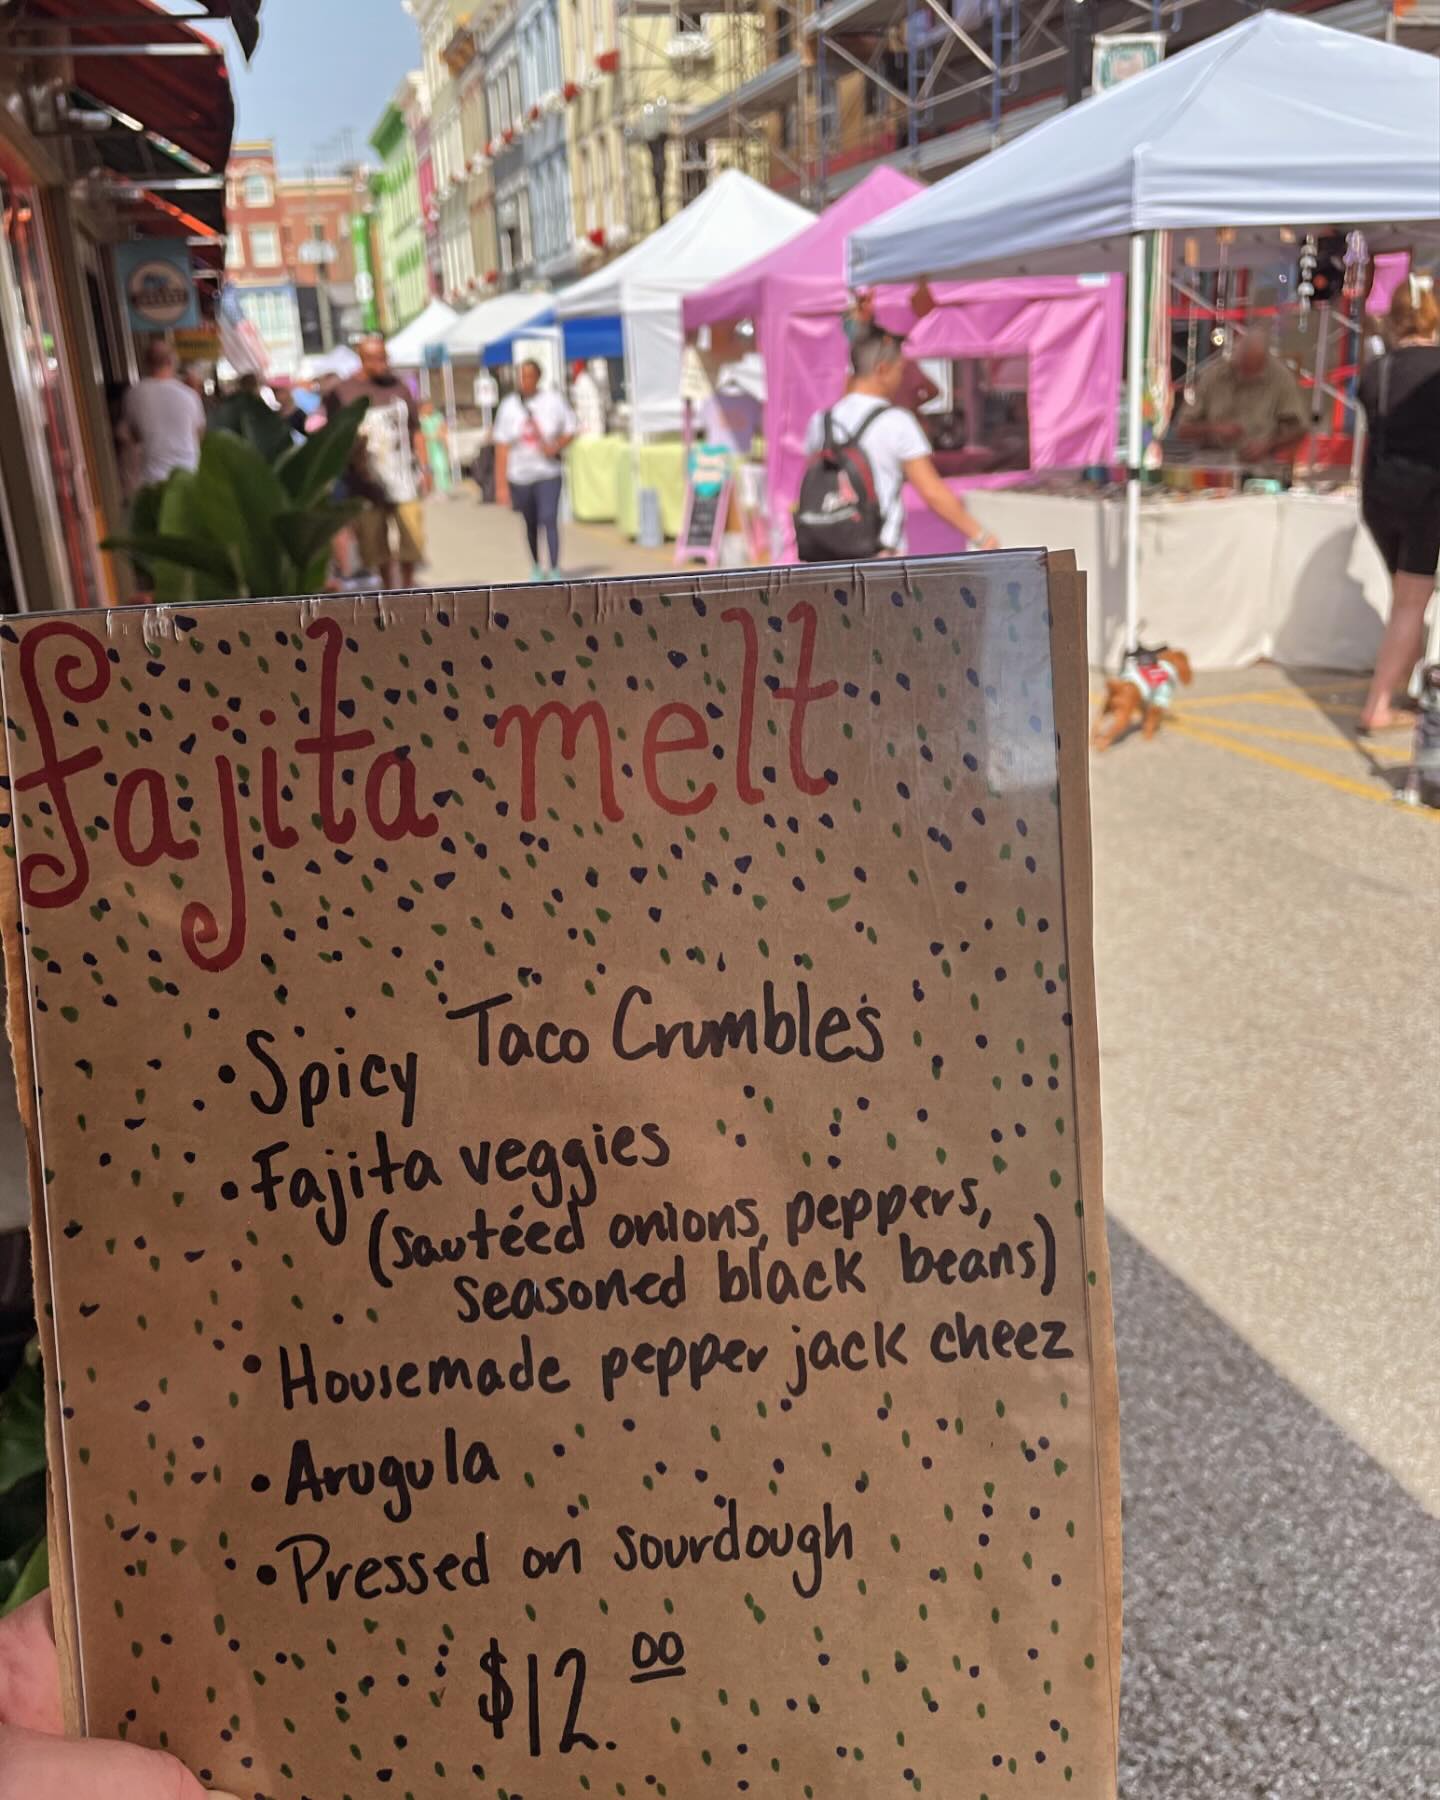 fajita melt
• Spicy Taco Crumbles
• Fajita veggies
(sautéed onions, peppers,
seasoned black beans)
• Housemade pepper jack cheez
• Arugula
• Pressed on sourdough
$12.00